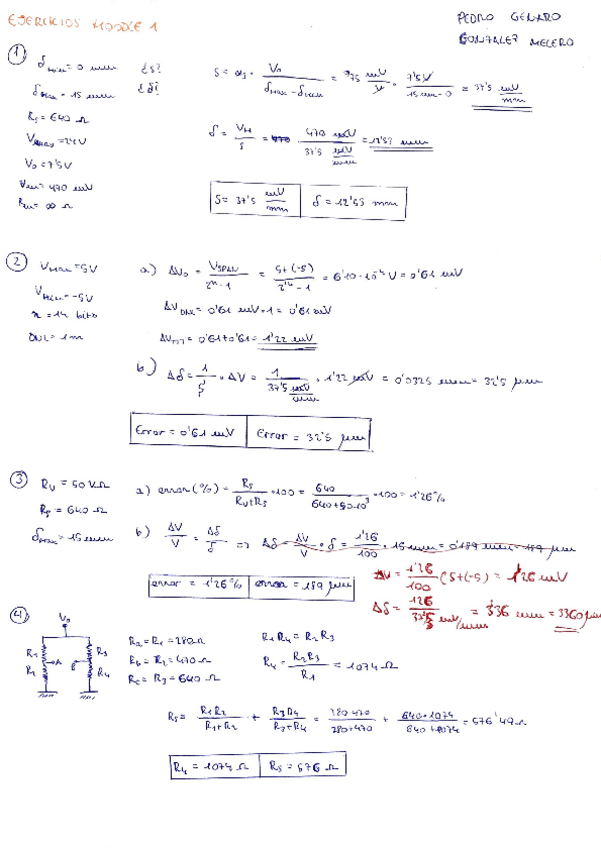 EJERCICIOS MOODLE 1
PEDRO GENARO
GONZALEZ MELERO
① δmin = 0 mm ¿S?
δmax = 15 mm ¿δ?
Rs = 640 Ω
Vmax = 24V
V0 = 7'5V
Vm = 470 mV
Rm = ∞ Ω
δ = VM/S = 470 mV / 37'5 mV/mm = 12'53 mm
S = 37'5 mV/mm δ = 12'53 mm
② VMax = 5V
VMin = -5V
n = 14 bits
DNL = 1
a) ΔV0 = VSPAN/2ⁿ-1 = 5+(-5)/2¹⁴-1 = 6'10·10⁻⁴ V = 0'61 mV
ΔVDNL = 0'61 mV·1 = 0'61 mV
ΔVTOT = 0'61+0'61 = 1'22 mV
b) Δδ = 1/S · ΔV = 1/37'5 mV/mm · 1'22 mV = 0'0325 mm = 32'5 μm
Error = 0'61 mV Error = 32'5 μm
③ RV = 50 KΩ
Rs = 640 Ω
δmax = 15 mm
a) error (%) = Rs/RV+Rs · 100 = 640/640+50·10³ · 100 = 1'26%
b) ΔV/V = Δδ/δ ⇒ Δδ = ΔV/V · δ = 1'26/100 · 15 mm = 0'189 mm = 189 μm
error = 1'26% error = 189 μm
ΔV = 1'26/100 (5+(-5) = 126 mV
= 3'36 mm = 3360 μm
④ V0
R1 R3
R2 A B R4
Ra = R1 = 280 Ω
Rb = R2 = 470 Ω
Rc = R3 = 640 Ω
R1R4 = R2R3
R4 = R2R3/R1 = 1074 Ω
Rs = R1R2/R1+R2 + R3R4/R3+R4 = 280·470/280+470 + 640·1074/640+1074 = 576'49 Ω
R4 = 1074 Ω Rs = 576 Ω